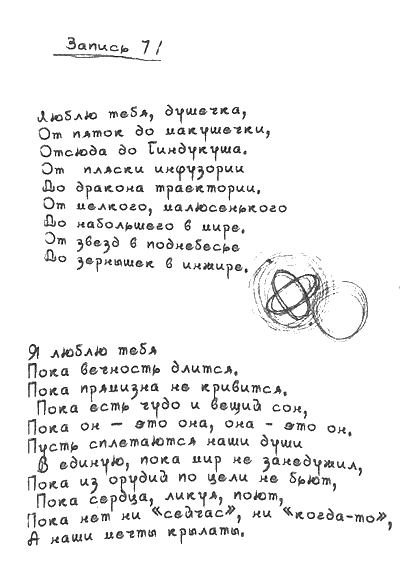 Запись 71
Люблю тебя, душечка,
От пяток до макушечки,
Отсюда до Гиндукуша.
От пляски инфузории
До дракона траектории.
От мелкого, малюсенького
До набольшего в мире.
От звезд в поднебесье
До зернышек в инжире.
Я люблю тебя
Пока вечность длится.
Пока прямизна не кривится.
Пока есть чудо и вещий сон,
Пока он – это она, она - это он.
Пусть сплетаются наши души
В единую, пока мир не занедужил,
Пока из орудий по цели не бьют,
Пока сердца, ликуя, поют,
Пока нет ни «сейчас», ни «когда-то»,
А наши мечты крылаты.